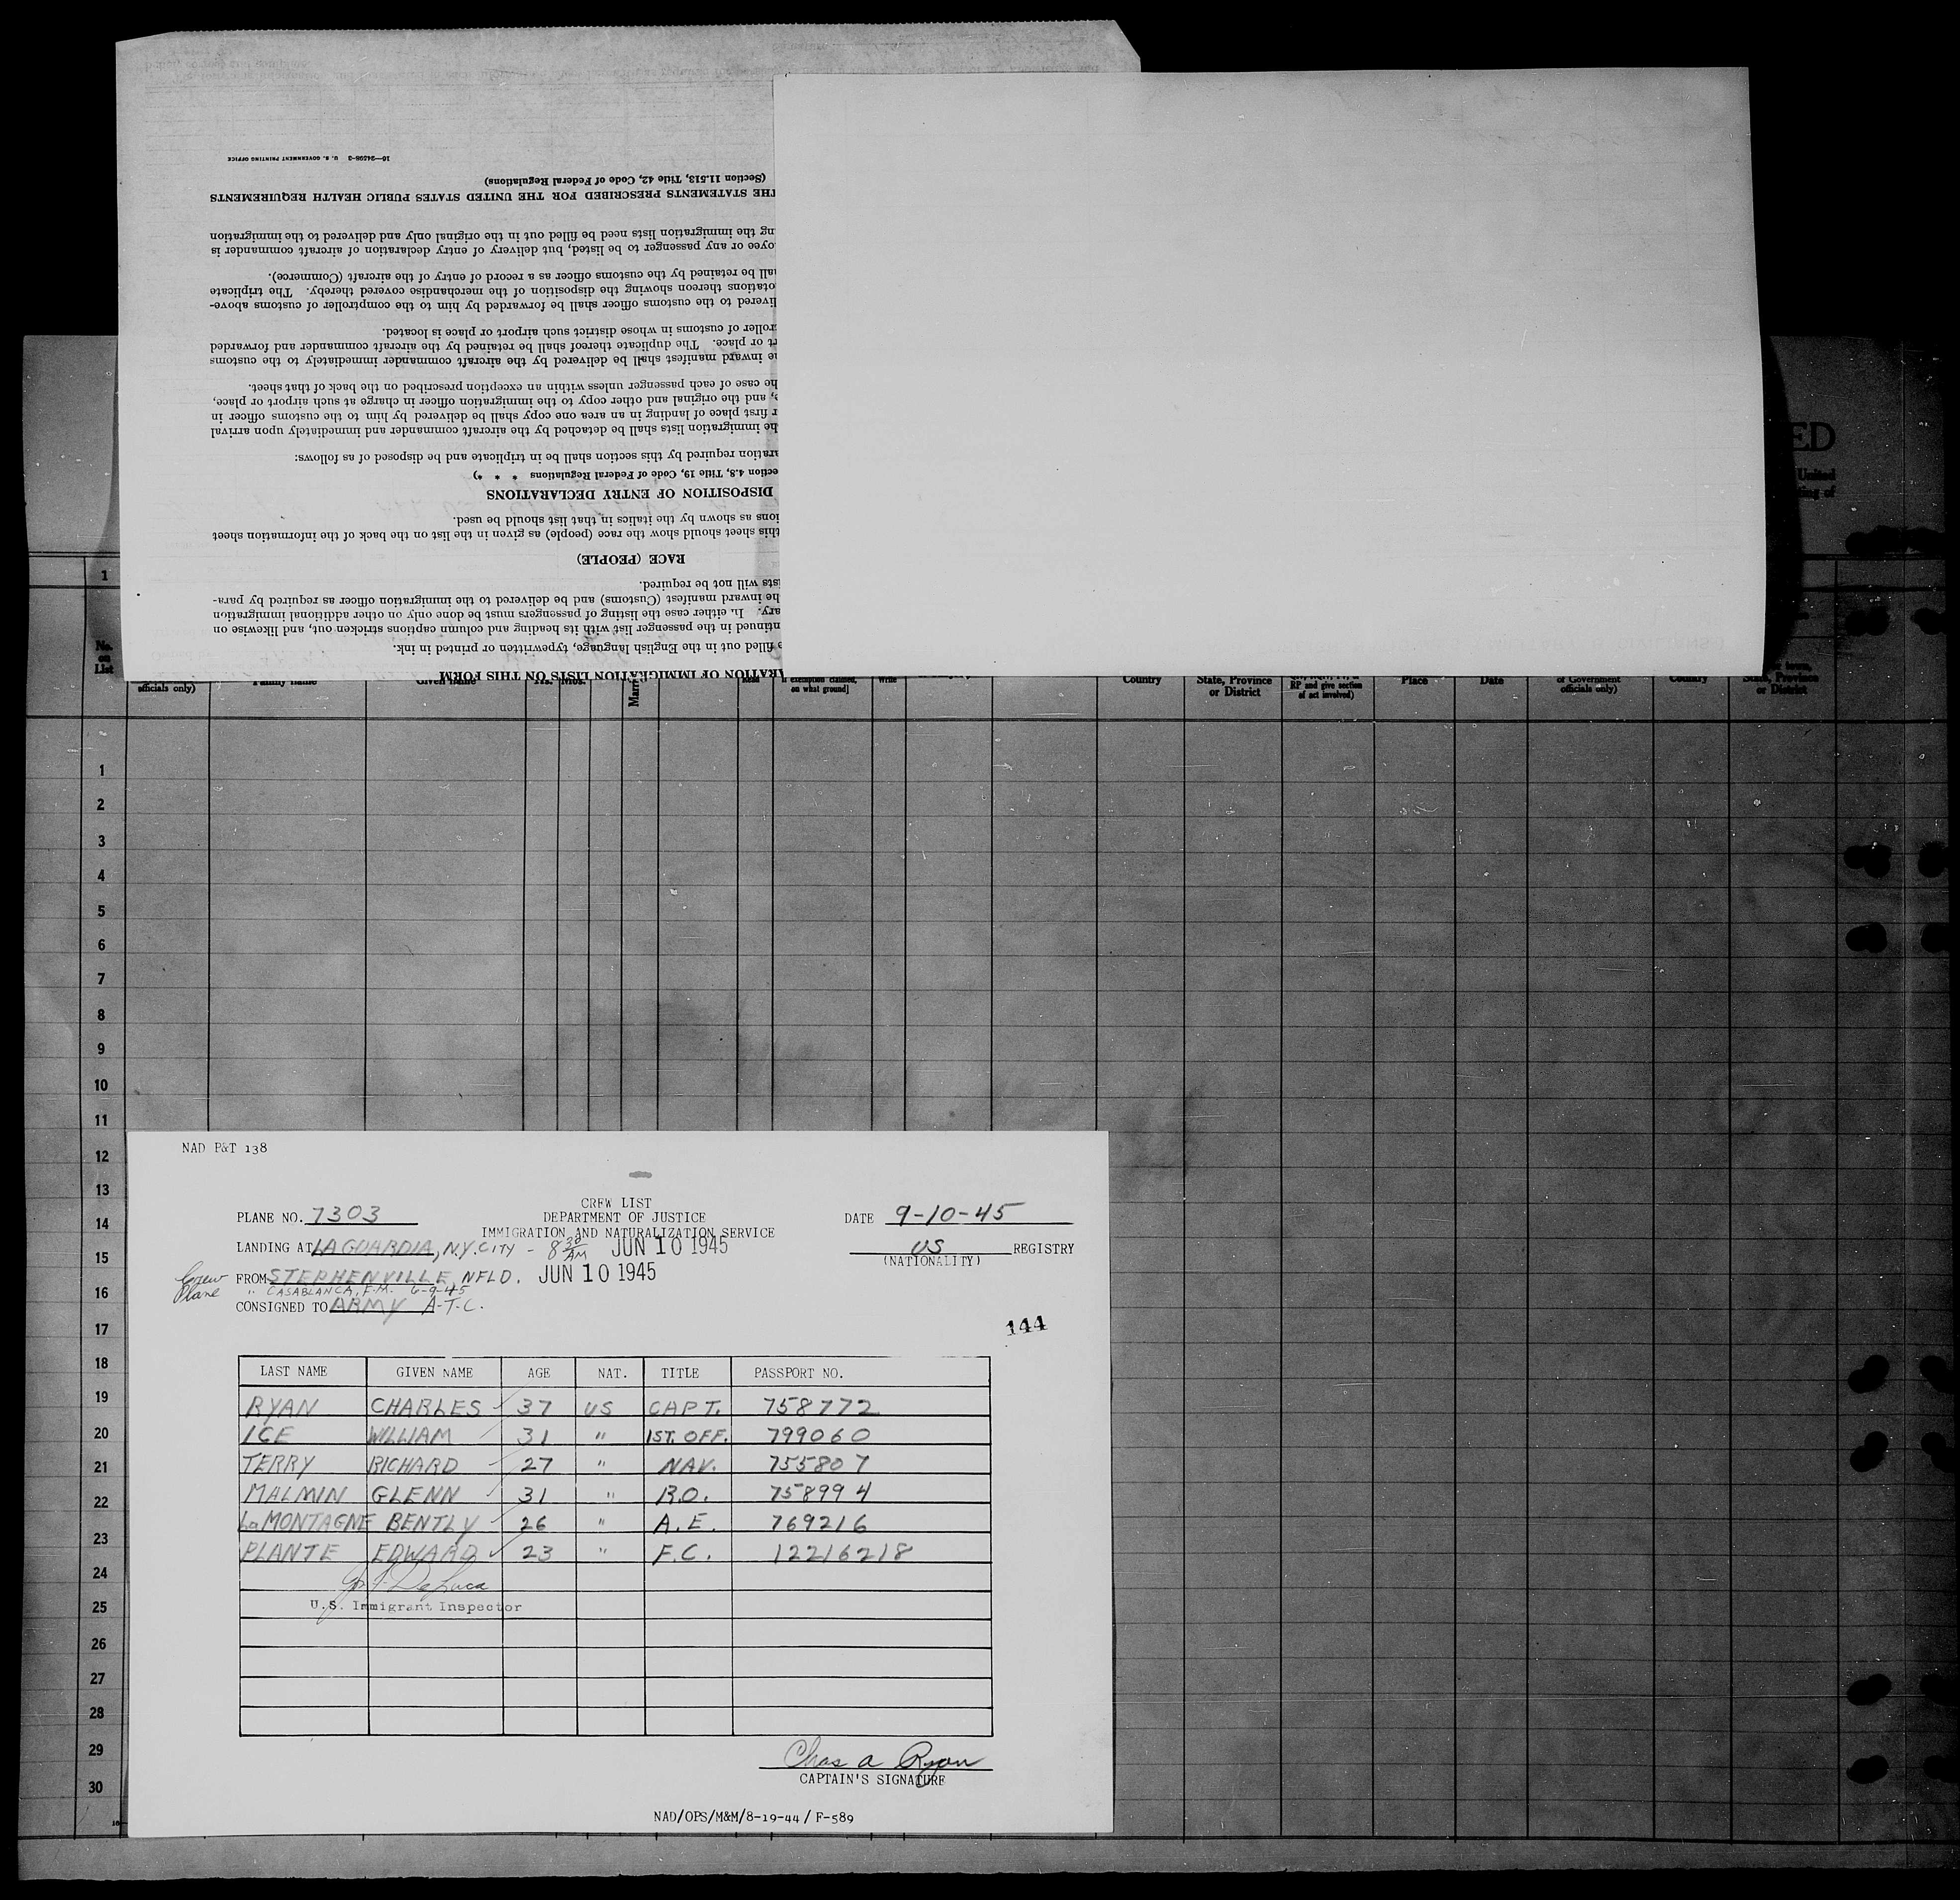 16—24598-3 U. S. GOVERNMENT PRINTING OFFICE
(Section 11.513, Title 42, Code of Federal Regulations)
THE STATEMENTS PRESCRIBED FOR THE UNITED STATES PUBLIC HEALTH REQUIREMENTS
ng the immigration lists need be filled out in the original only and delivered to the immigration
oyee or any passenger to be listed, but delivery of entry declaration of aircraft commander is
hall be retained by the customs officer as a record of entry of the aircraft (Commerce).
otations thereon showing the disposition of the merchandise covered thereby. The triplicate
livered to the customs officer shall be forwarded by him to the comptroller of customs above-
roller of customs in whose district such airport or place is located.
rt or place. The duplicate thereof shall be retained by the aircraft commander and forwarded
he inward manifest shall be delivered by the aircraft commander immediately to the customs
he case of each passenger unless within an exception prescribed on the back of that sheet.
e, and the original and other copy to the immigration officer in charge at such airport or place,
r first place of landing in an area one copy shall be delivered by him to the customs officer in
he immigration lists shall be detached by the aircraft commander and immediately upon arrival
aration required by this section shall be in triplicate and be disposed of as follows:
ection 4.8, Title 19, Code of Federal Regulations * * *)
DISPOSITION OF ENTRY DECLARATIONS
ions as shown by the italics in that list should be used.
this sheet should show the race (people) as given in the list on the back of the information sheet
RACE (PEOPLE)
sts will not be required.
he inward manifest (Customs) and be delivered to the immigration officer as required by para-
ary. In either case the listing of passengers must be done only on other additional immigration
ntinued in the passenger list with its heading and column captions stricken out, and likewise on
e filled out in the English language, typewritten or printed in ink.
ARATION OF IMMIGRATION LISTS ON THIS FORM
ED
United
ing of
1
No. on List
officials only) Family name Given name Yrs. Mos. Read if exemption claimed, on what ground] Write Country State, Province or District RP and give section of act involved) Place Date or Government officials only) Country State, Province or District
1
2
3
4
5
6
7
8
9
10
11
12
13
14
15
16
17
18
19
20
21
22
23
24
25
26
27
28
29
30
NAD P&T 138
CREW LIST
PLANE NO. 7303 DEPARTMENT OF JUSTICE DATE 9-10-45
IMMIGRATION AND NATURALIZATION SERVICE
LANDING AT LA GUARDIA, N.Y. CITY - 8 30 AM JUN 10 1945 US REGISTRY
(NATIONALITY)
Crew FROM STEPHENVILLE, NFLD. JUN 10 1945
Plane " CASABLANCA, F.M. 6-9-45
CONSIGNED TO ARMY A-T-C.
144
LAST NAME GIVEN NAME AGE NAT. TITLE PASSPORT NO.
RYAN CHARLES 37 US CAPT. 758772
ICE WILLIAM 31 " 1ST. OFF. 799060
TERRY RICHARD 27 " NAV. 755807
MALMIN GLENN 31 " R.O. 758994
LaMONTAGNE BENTLY 26 " A.E. 769216
PLANTE EDWARD 23 " F.C. 12216218
U.S. Immigrant Inspector
Chas A Ryan
CAPTAIN'S SIGNATURE
NAD/OPS/M&M/8-19-44 / F-589